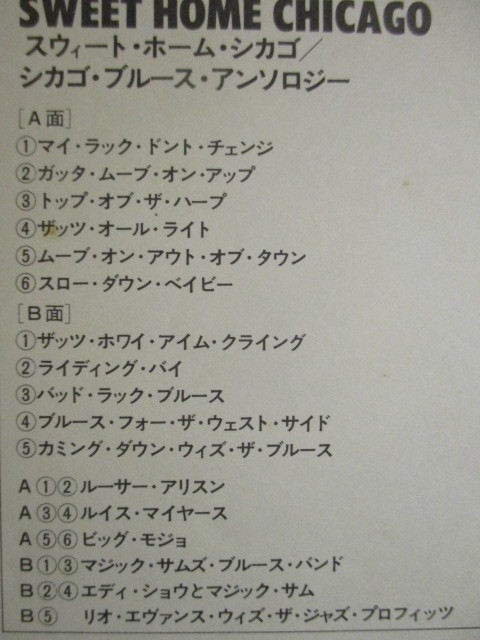 SWEET HOME CHICAGO
スウィート・ホーム・シカゴ／
シカゴ・ブルース・アンソロジー
［A面］
①マイ・ラック・ドント・チェンジ
②ガッタ・ムーブ・オン・アップ
③トップ・オブ・ザ・ハープ
④ザッツ・オール・ライト
⑤ムーブ・オン・アウト・オブ・タウン
⑥スロー・ダウン・ベイビー
［B面］
①ザッツ・ホワイ・アイム・クライング
②ライディング・バイ
③バッド・ラック・ブルース
④ブルース・フォー・ザ・ウェスト・サイド
⑤カミング・ダウン・ウィズ・ザ・ブルース
A①②ルーサー・アリスン
A③④ルイス・マイヤース
A⑤⑥ビッグ・モジョ
B①③マジック・サムズ・ブルース・バンド
B②④エディ・ショウとマジック・サム
B⑤ リオ・エヴァンス・ウィズ・ザ・ジャズ・プロフィッツ